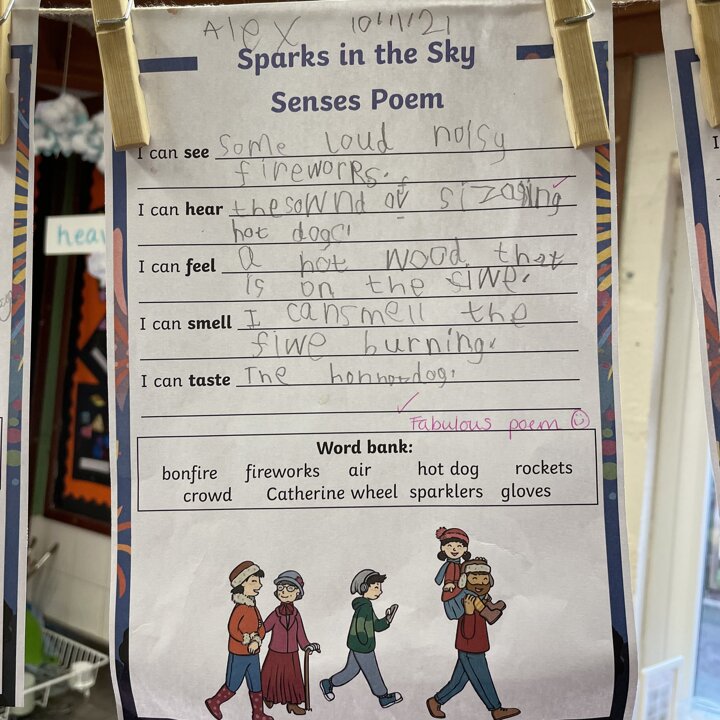 Alex 10/11/21
Sparks in the Sky
Senses Poem
I can see some loud noisy
fireworks.
I can hear the sownd of sizaging
hot dogs!
I can feel a hot wood that
is on the siwe.
I can smell I can smell the
fiwe burning.
I can taste The hohhotdog.
Fabulous poem
Word bank:
bonfire fireworks air hot dog rockets
crowd Catherine wheel sparklers gloves
hea